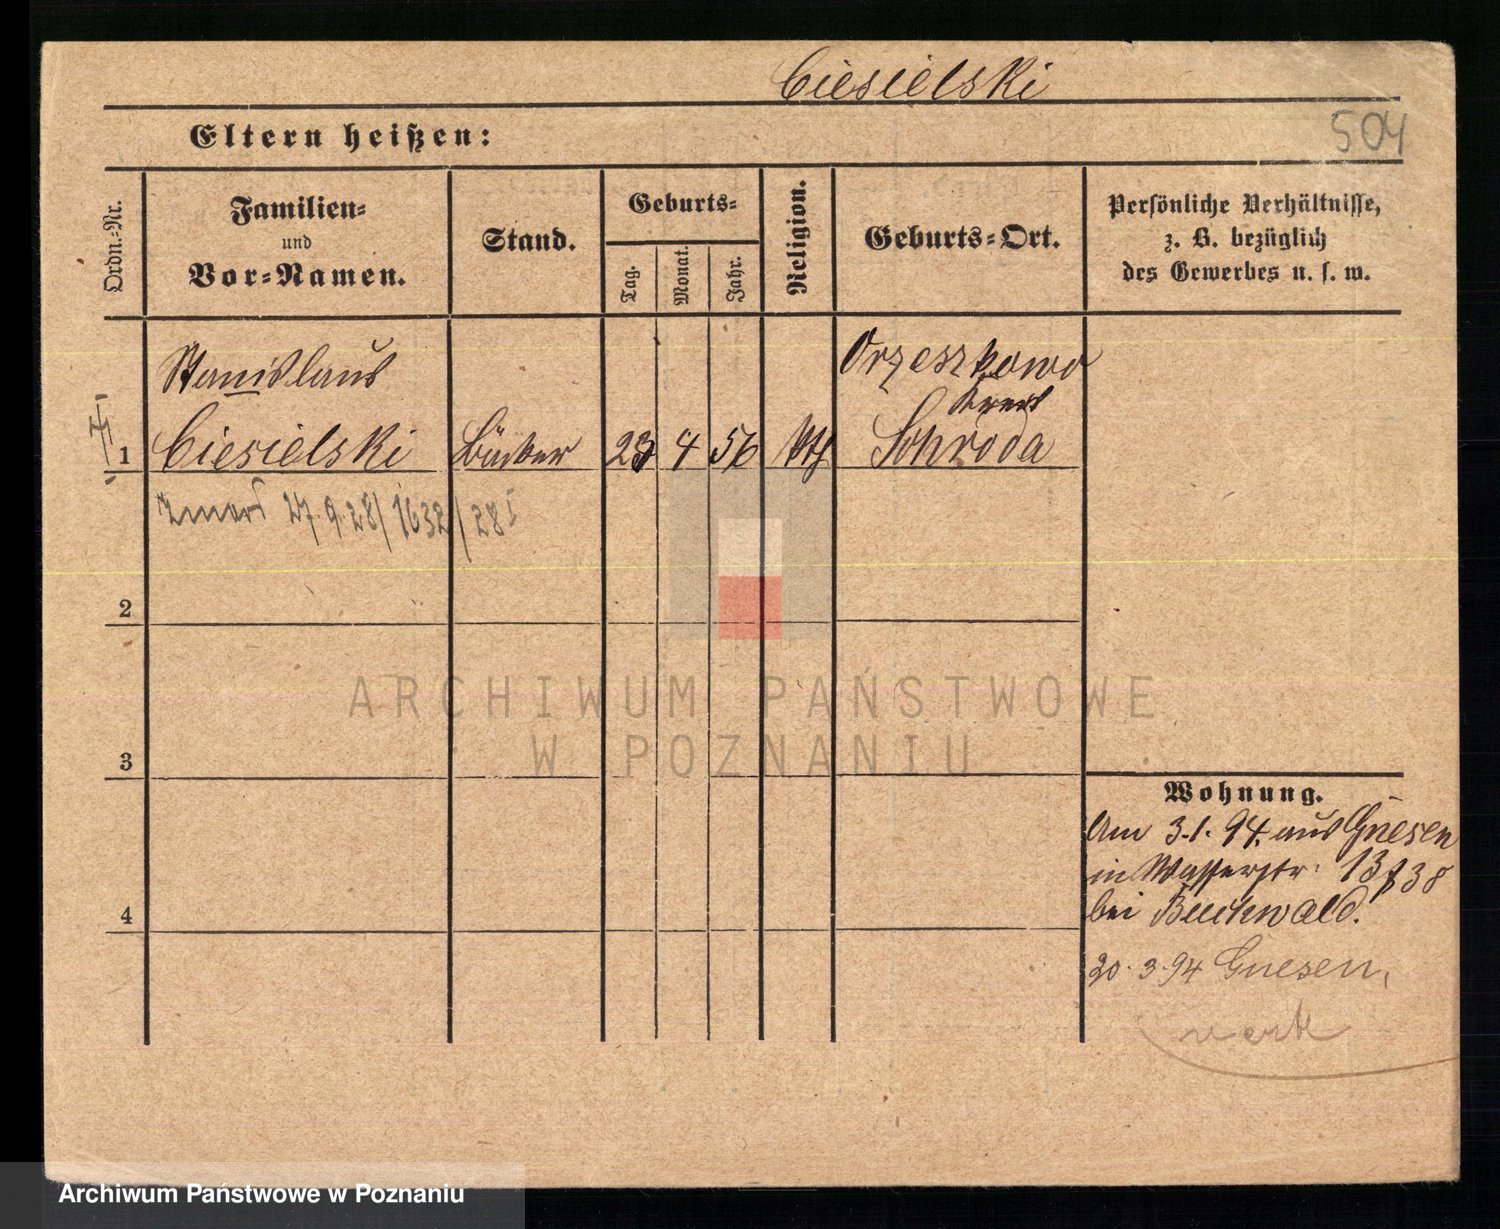 Ciesielski
504
Eltern heißen:
Ordn.-Nr.
Familien-
und
Vor-Namen.
Stand.
Geburts-
Tag.
Monat.
Jahr.
Religion.
Geburts-Ort.
Persönliche Verhältnisse,
z. B. bezüglich
des Gewerbes u. s. w.
Stanislaus
Orzeszkowo
Kreis
1 Ciesielski 23 4 56 kth Schroda
zmarł 27.9.28/1632/28
2
3
4
Wohnung.
Am 3.1.94. aus Gnesen
in Wasserstr. 13 38
bei Buchwald.
20.3.94 Gnesen,
ARCHIWUM PAŃSTWOWE
W POZNANIU
Archiwum Państwowe w Poznaniu